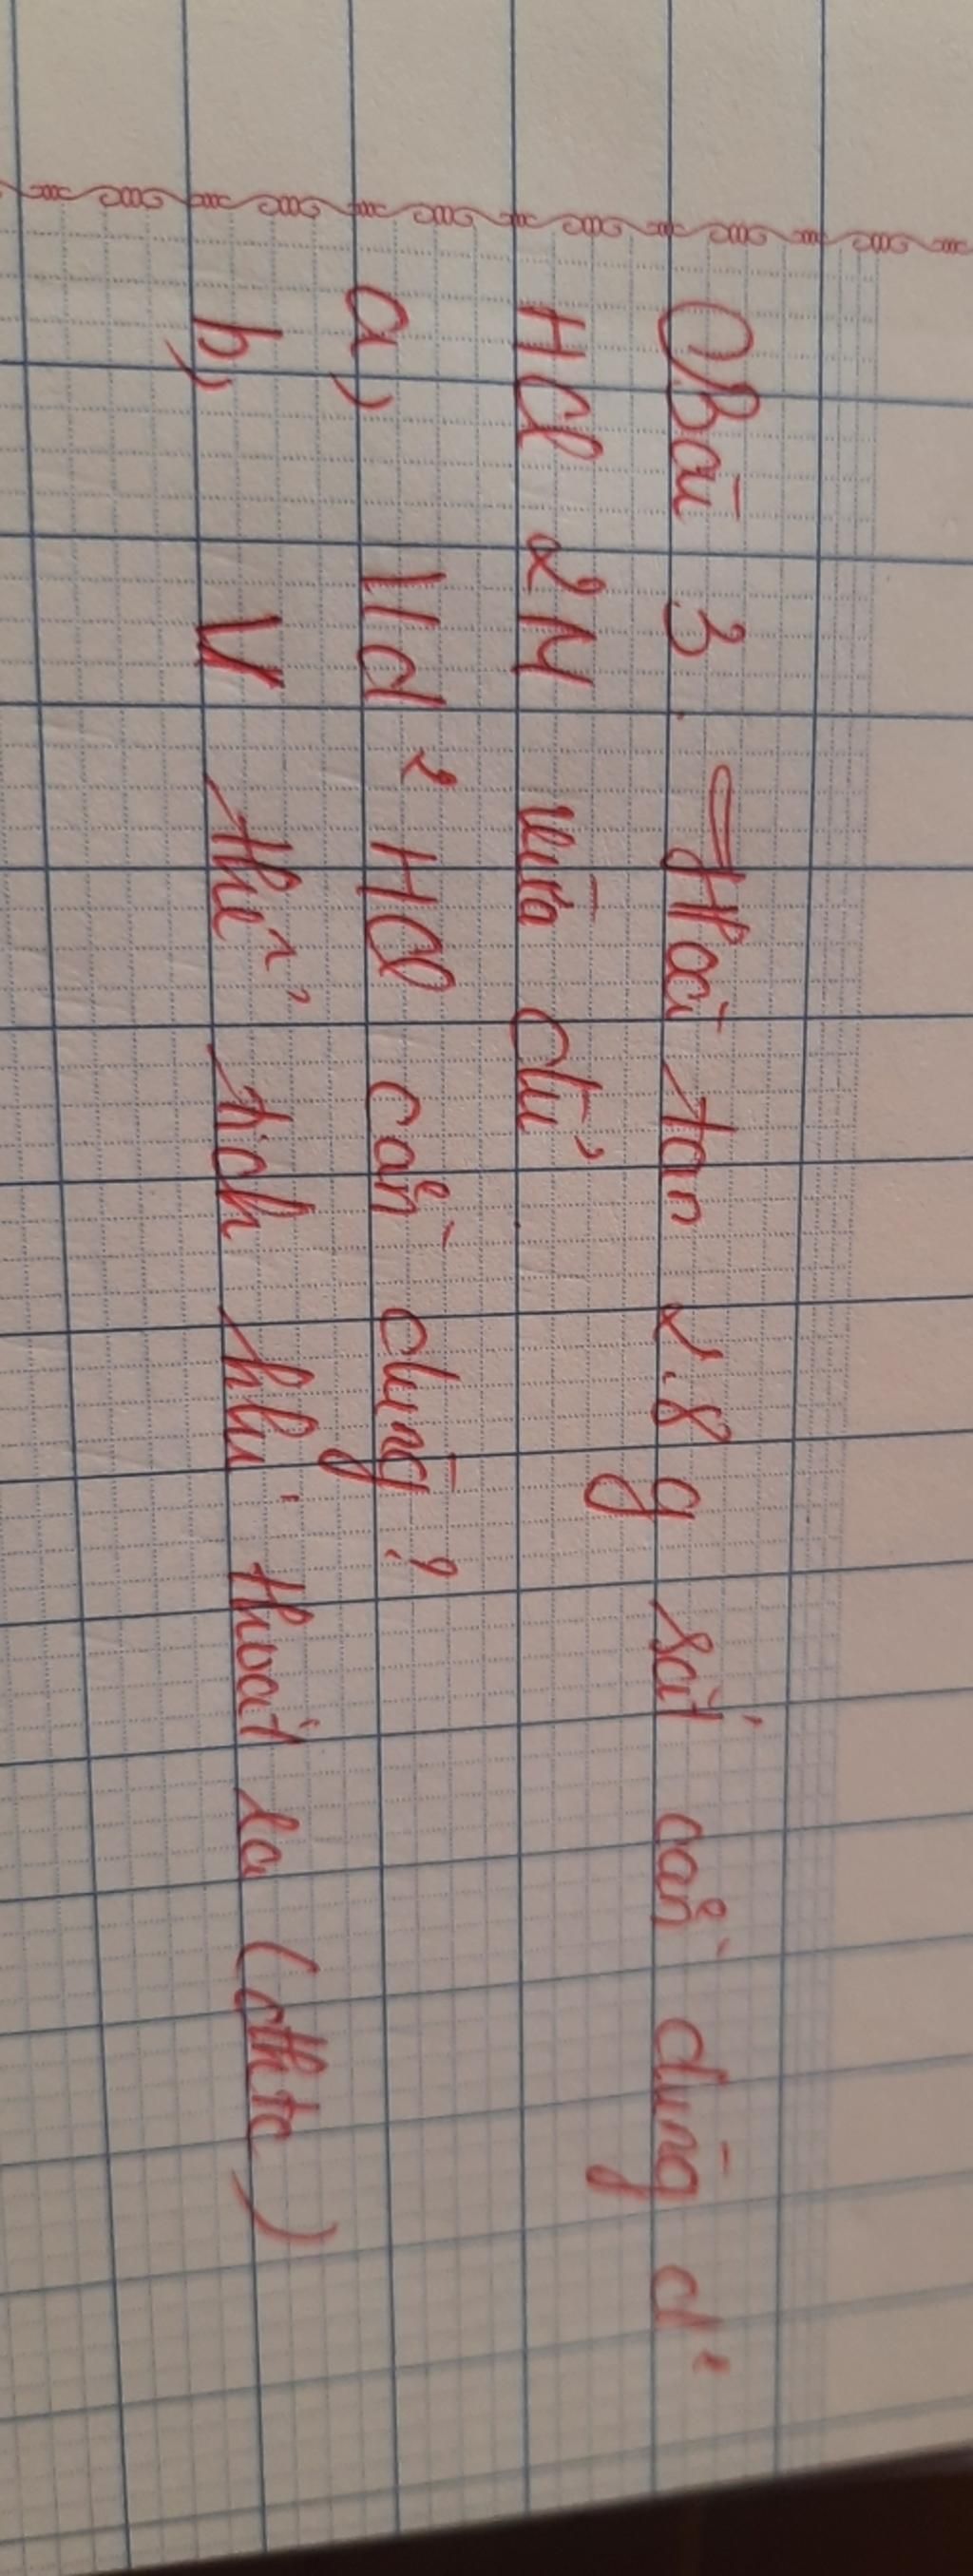 Bài 3. Hoà tan 2.8 g sắt cần dùng d²
HCl 2M vừa đủ.
a) Vd² HCl cần dùng?
b) V thể tích khí thoát ra (đktc)